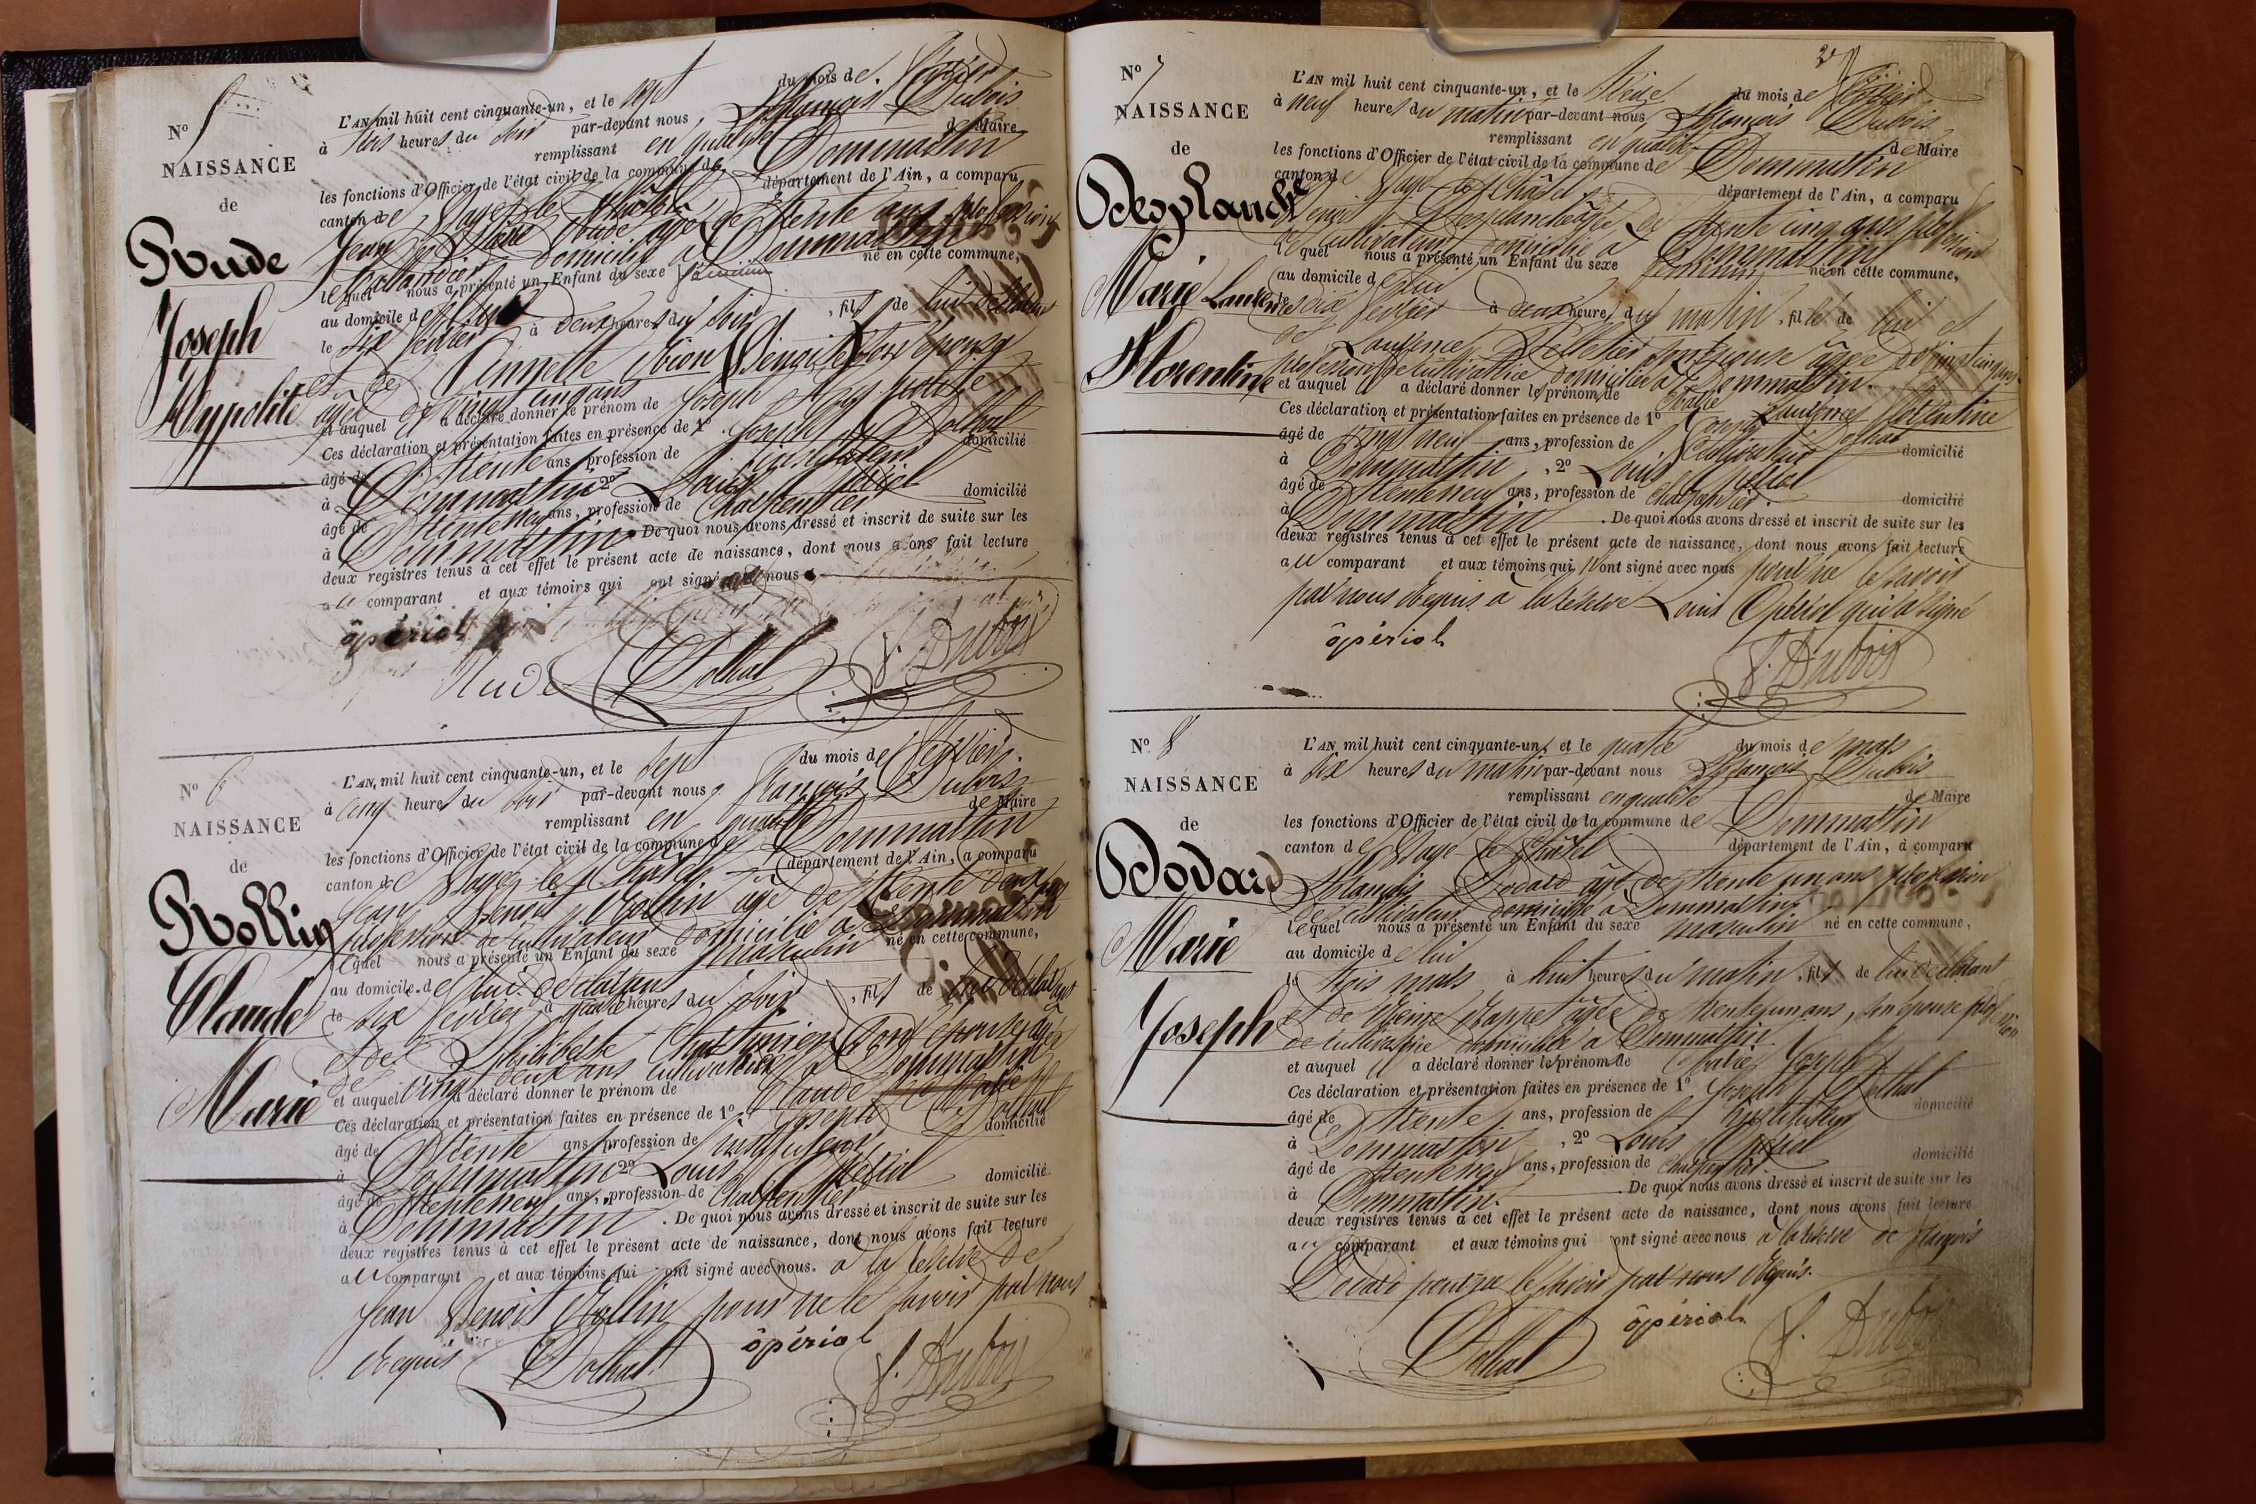 N° 5
NAISSANCE
de
Rude
Joseph
Hyppolite
L'AN mil huit cent cinquante-un, et le sept du mois de février
à trois heures du soir par-devant nous, François Dubois
remplissant en qualité de Maire
les fonctions d'Officier de l'état civil de la commune de Dommartin
canton de Bagé-le-Châtel département de l'Ain, a comparu
Jean Rude âgé de trente ans profession
domicilié à Dommartin
lequel nous a présenté un Enfant du sexe masculin né en cette commune,
au domicile de lui
le six février à deux heures du soir, fils de lui déclarant
et de Benoite son épouse
âgée de vingt cinq ans
et auquel il a déclaré donner le prénom de Joseph Hyppolite
Ces déclaration et présentation faites en présence de 1° Joseph Dothal
âgé de trente ans, profession de instituteur domicilié
à Dommartin 2° Louis Opériol
âgé de trente neuf ans, profession de charpentier domicilié
à Dommartin. De quoi nous avons dressé et inscrit de suite sur les
deux registres tenus à cet effet le présent acte de naissance, dont nous avons fait lecture
au comparant et aux témoins qui ont signé avec nous
ôpériol
Rude Dothal f. Dubois
N° 6
NAISSANCE
de
Rollin
Claude
Marie
L'AN mil huit cent cinquante-un, et le sept du mois de février
à cinq heures du soir par-devant nous François Dubois
remplissant en qualité de Maire
les fonctions d'Officier de l'état civil de la commune de Dommartin
canton de Bagé-le-Châtel département de l'Ain, a comparu
Jean Benoit Rollin âgé de trente deux ans
profession de cultivateur domicilié à Dommartin
lequel nous a présenté un Enfant du sexe masculin né en cette commune,
au domicile de lui déclarant
le six février à quatre heures du soir, fils de lui déclarant
et de Philiberte son épouse âgée
de vingt deux ans cultivatrice à Dommartin
et auquel il a déclaré donner le prénom de Claude Marie
Ces déclaration et présentation faites en présence de 1° Joseph Dothal
âgé de trente ans profession de instituteur domicilié
à Dommartin 2° Louis Opériol
âgé de trente neuf ans, profession de charpentier domicilié
à Dommartin. De quoi nous avons dressé et inscrit de suite sur les
deux registres tenus à cet effet le présent acte de naissance, dont nous avons fait lecture
au comparant et aux témoins qui ont signé avec nous. à la réserve de
Jean Benoit Rollin pour ne le savoir par nous
requis Dothal ôpériol f. Dubois
N° 7
NAISSANCE
de
Desplanche
Marie Laurence
Florentine
L'AN mil huit cent cinquante-un, et le treize du mois de février
à neuf heures du matin par-devant nous, François Dubois
remplissant en qualité de Maire
les fonctions d'Officier de l'état civil de la commune de Dommartin
canton de Bagé-le-Châtel département de l'Ain, a comparu
Benoit Desplanche âgé de trente cinq ans profession
de cultivateur domicilié à Dommartin
lequel nous a présenté un Enfant du sexe féminin né en cette commune,
au domicile de lui
le dix février à deux heures du matin, fille de lui et
de Laurence Pelletier son épouse âgée de vingt cinq ans
profession de cultivatrice domiciliée à Dommartin.
et auquel il a déclaré donner le prénom de Marie Laurence Florentine
Ces déclaration et présentation faites en présence de 1° Dothal
âgé de vingt neuf ans, profession de domicilié
à Dommartin, 2° Louis Opériol
âgé de trente neuf ans, profession de charpentier domicilié
à Dommartin. De quoi nous avons dressé et inscrit de suite sur les
deux registres tenus à cet effet le présent acte de naissance, dont nous avons fait lecture
au comparant et aux témoins qui n'ont signé avec nous pour ne le savoir
par nous requis à la réserve Louis Opériol qui a signé
ôpériol
f. Dubois
N° 8
NAISSANCE
de
Dodard
Marie
Joseph
L'AN mil huit cent cinquante-un, et le quatre du mois de mars
à dix heures du matin par-devant nous François Dubois
remplissant en qualité de Maire
les fonctions d'Officier de l'état civil de la commune de Dommartin
canton de Bagé-le-Châtel département de l'Ain, a comparu
François Dodard âgé de trente un ans profession
de cultivateur domicilié à Dommartin
lequel nous a présenté un Enfant du sexe masculin né en cette commune,
au domicile de lui
le trois mars à huit heures du matin, fils de lui déclarant
et de âgée de trente un ans, son épouse profession
de cultivatrice domiciliée à Dommartin.
et auquel il a déclaré donner le prénom de Marie Joseph
Ces déclaration et présentation faites en présence de 1° Joseph Dothal
âgé de trente ans, profession de instituteur domicilié
à Dommartin, 2° Louis Opériol
âgé de trente neuf ans, profession de charpentier domicilié
à Dommartin. De quoi nous avons dressé et inscrit de suite sur les
deux registres tenus à cet effet le présent acte de naissance, dont nous avons fait lecture
au comparant et aux témoins qui ont signé avec nous à la réserve de François
Dodard pour ne le savoir par nous requis.
Dothal ôpériol f. Dubois